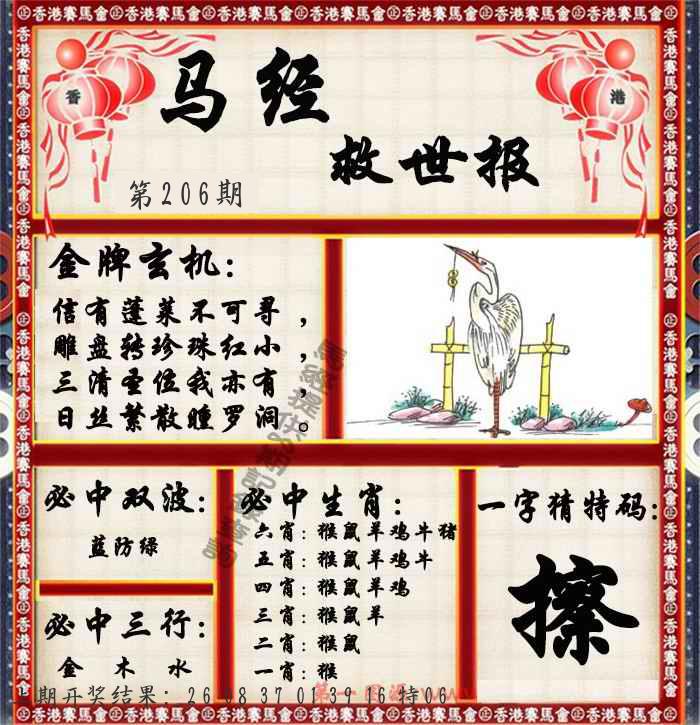 香港賽馬會
香
港
马经
救世报
第206期
金牌玄机：
信有蓬莱不可寻，
雕盘转珍珠红小，
三清圣位我亦有，
日丝繁散瞳罗洞。
必中双波：
蓝防绿
必中三行：
金 木 水
必中生肖：
六肖：猴鼠羊鸡牛猪
五肖：猴鼠羊鸡牛
四肖：猴鼠羊鸡
三肖：猴鼠羊
二肖：猴鼠
一肖：猴
一字猜特码：
擦
期开奖结果：26 08 37 01 39 16 特06